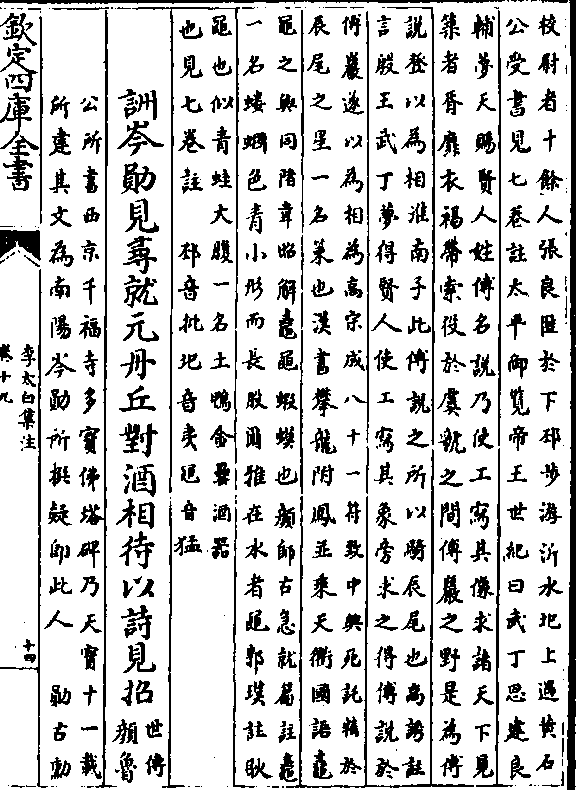 校尉者十餘人張良匿於下邳步游沂水圯上遇黃石
公受書見七卷註太平御覽帝王世紀曰武丁思建良
輔夢天賜賢人姓傅名說乃使工寫其像求諸天下見
築者胥靡衣褐帶索役於虞虢之間傅巖之野是為傅
說登以為相淮南子此傅說之所以騎辰尾也高誘註
言殷王武丁夢得賢人使工寫其象旁求之得傅說於
傅巖遂以為相為高宗成八十一符致中興死託精於
辰尾之星一名策也漢書攀龍附鳳並乘天衢國語鼃
黽之與同階韋昭解鼃黽蝦蟆也顏師古急就篇註鼃
一名螻蟈色青小形而長股爾雅在水者黽郭璞註耿
黽也似青蛙大腹一名土鴨金罍酒器
也見七卷註 邳音批圯音夷黽音猛
詶岑勛見尋就元丹丘對酒相待以詩見招 世傳顏魯
公所書西京千福寺多寶佛塔碑乃天寶十一載
所建其文為南陽岑勛所撰疑即此人 勛古勳
欽定四庫全書
李太白集注
卷十九
十四